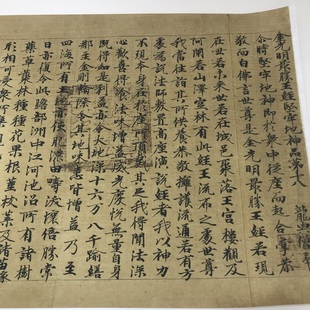 金光明最勝王經堅牢地神品第十八
尒時堅牢地神即於衆中從座而起合掌恭
敬而白佛言世尊是金光明最勝王經若現
在世若未來世若在城邑聚落王宮樓觀及
阿蘭若山澤空林有此經王流布之處世尊
我當往詣其所供養恭敬擁護流通若有方
處爲說法師敷置高座演說經者我以神力
不現本身在於座所頂戴其足我得聞法深
心歡喜得飡法味增益威光慶悅無量自身
既得如是利益亦令大地深十六万八千踰繕
那至金剛輪際令其地味悉皆增益乃至
四海所有土地亦使肥濃田疇沃壤倍勝常
日亦復令此贍部洲中江河池沼所有諸樹
藥草藂林種種花果根莖枝葉及諸苗稼
形相可愛衆所樂觀